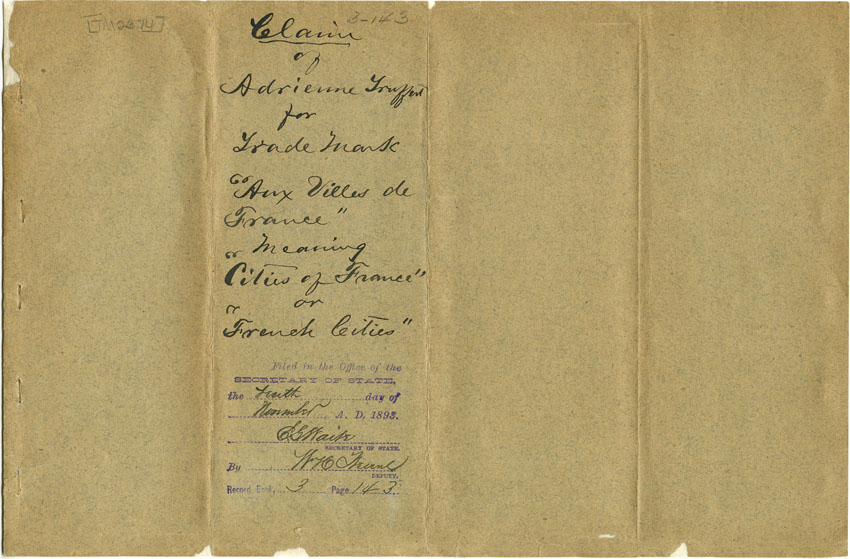 3-143
Claim
of
Adrienne Truffert
for
Trade Mark
"Aux Villes de
France"
Meaning
"Cities of France"
or
"French Cities"
Filed in the Office of the
SECRETARY OF STATE,
the Tenth day of
November A. D. 1893.
E G Waite
SECRETARY OF STATE.
By W H
DEPUTY.
Record Book, 3 Page 143